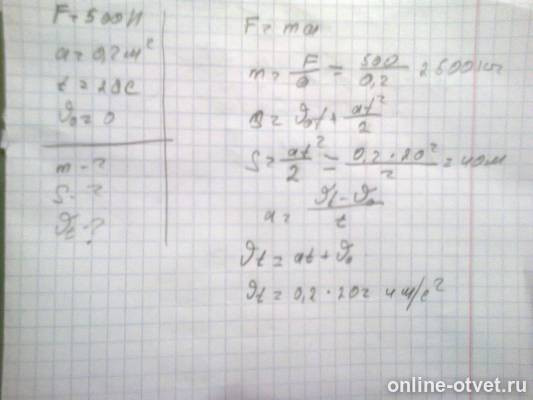 F = 500 Н
a = 0,2 м²
t = 20 с
ϑ₀ = 0
m - ?
S - ?
ϑt - ?
F = ma
m = F/a = 500/0,2 = 2500 кг
S = ϑ₀t + at²/2
S = at²/2 = 0,2 · 20²/2 = 40 м
a = ϑt - ϑ₀/t
ϑt = at + ϑ₀
ϑt = 0,2 · 20 = 4 м/с²
online-otvet.ru